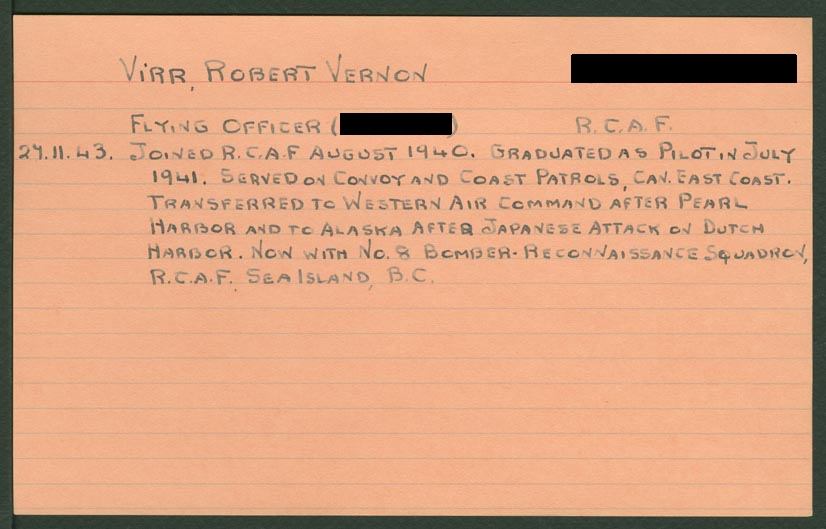 VIRR, ROBERT VERNON
FLYING OFFICER ( ) R.C.A.F.
29.11.43. JOINED R.C.A.F AUGUST 1940. GRADUATED AS PILOT IN JULY
1941. SERVED ON CONVOY AND COAST PATROLS, CAN. EAST COAST.
TRANSFERRED TO WESTERN AIR COMMAND AFTER PEARL
HARBOR AND TO ALASKA AFTER JAPANESE ATTACK ON DUTCH
HARBOR. NOW WITH NO. 8 BOMBER-RECONNAISSANCE SQUADRON,
R.C.A.F. SEA ISLAND, B.C.